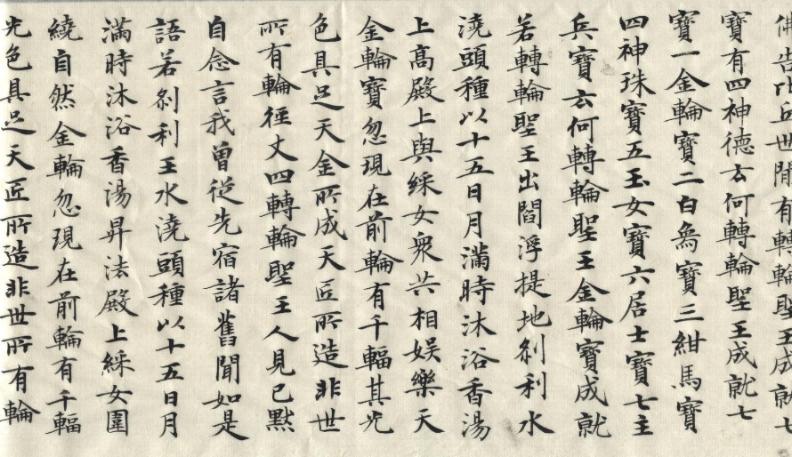 佛告比丘世間有轉輪聖王成就七
寶有四神德云何轉輪聖王成就七
寶一金輪寶二白鳥寶三紺馬寶
四神珠寶五玉女寶六居士寶七主
兵寶云何轉輪聖王金輪寶成就
若轉輪聖王出閻浮提地剎利水
澆頭種以十五日月滿時沐浴香湯
上高殿上與婇女眾共相娛樂天
金輪寶忽現在前輪有千輻其光
色具足天金所成天匠所造非世
所有輪徑丈四轉輪聖王人見已默
自念言我曾從先宿諸舊聞如是
語若剎利王水澆頭種以十五日月
滿時沐浴香湯昇法殿上婇女圍
繞自然金輪忽現在前輪有千輻
光色具足天匠所造非世所有輪